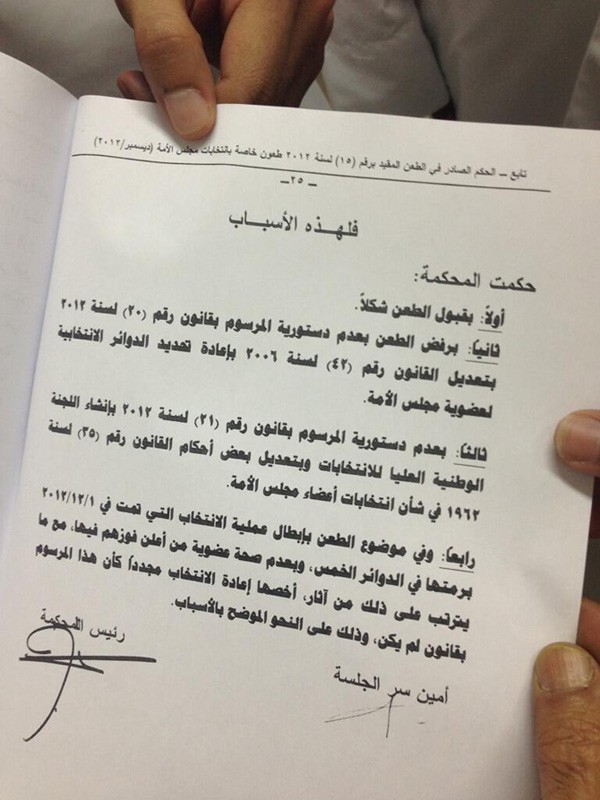 تابع – الحكم الصادر في الطعن المقيد برقم (١٥) لسنة ٢٠١٢ طعون خاصة بانتخابات مجلس الأمة (ديسمبر/٢٠١٢)
– ٢٥ –
فلهذه الأسباب
حكمت المحكمة:
أولاً: بقبول الطعن شكلاً.
ثانياً: برفض الطعن بعدم دستورية المرسوم بقانون رقم (٢٠) لسنة ٢٠١٢
بتعديل القانون رقم (٤٢) لسنة ٢٠٠٦ بإعادة تحديد الدوائر الانتخابية
لعضوية مجلس الأمة.
ثالثاً: بعدم دستورية المرسوم بقانون رقم (٢١) لسنة ٢٠١٢ بإنشاء اللجنة
الوطنية العليا للانتخابات وبتعديل بعض أحكام القانون رقم (٣٥) لسنة
١٩٦٢ في شأن انتخابات أعضاء مجلس الأمة.
رابعاً: وفي موضوع الطعن بإبطال عملية الانتخاب التي تمت في ٢٠١٢/١٢/١
برمتها في الدوائر الخمس، وبعدم صحة عضوية من أعلن فوزهم فيها، مع ما
يترتب على ذلك من آثار، أخصها إعادة الانتخاب مجدداً كأن هذا المرسوم
بقانون لم يكن، وذلك على النحو الموضح بالأسباب.
رئيس المحكمة
أمين سر الجلسة